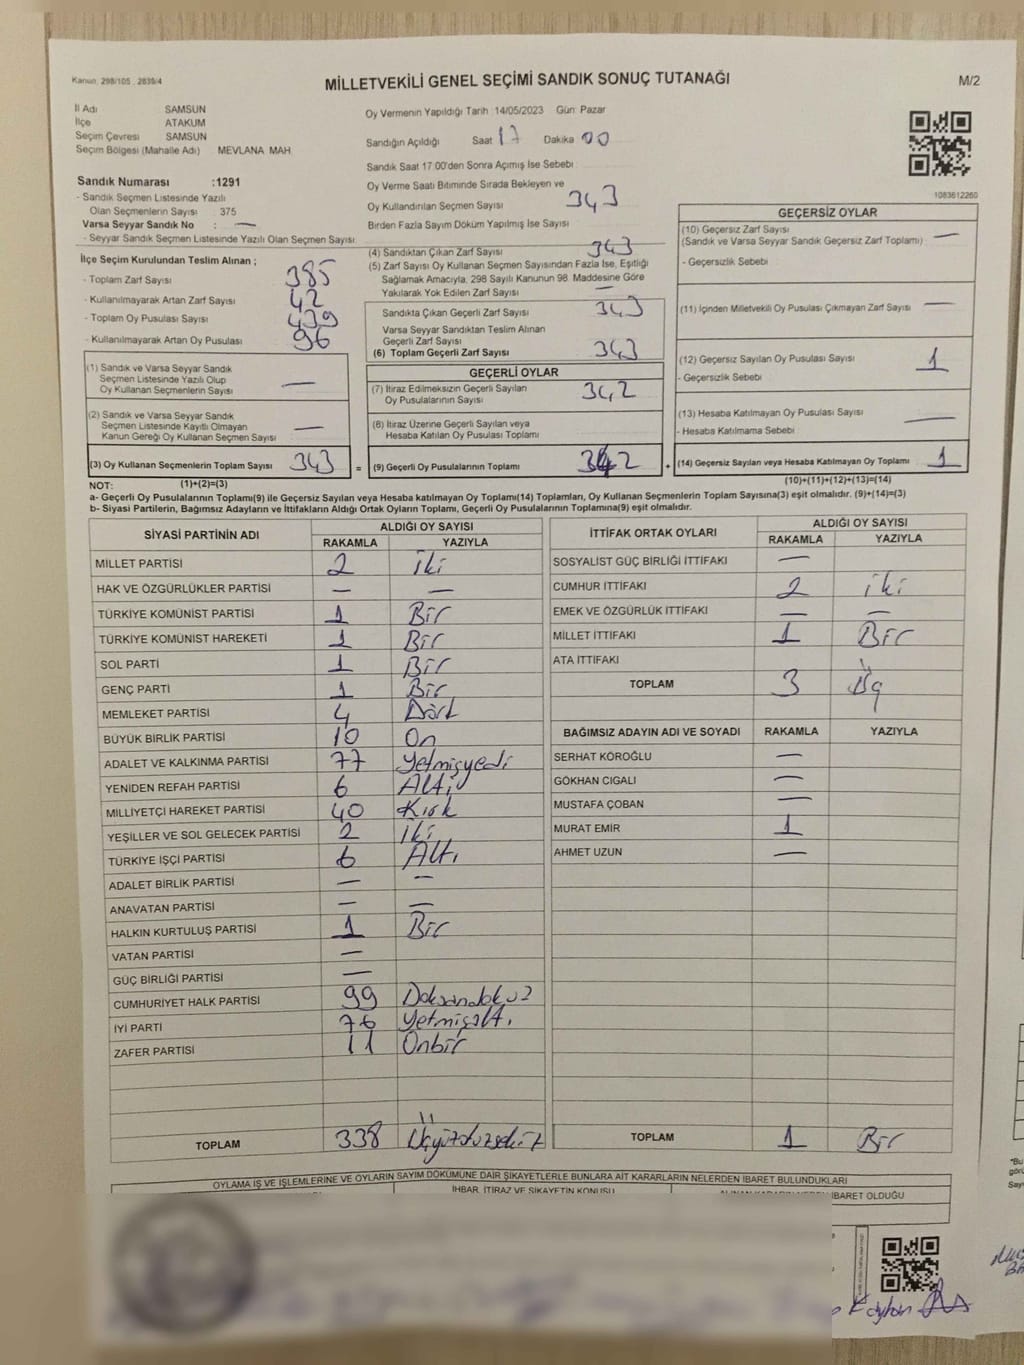 Kanun, 298/105 , 2839/4
MİLLETVEKİLİ GENEL SEÇİMİ SANDIK SONUÇ TUTANAĞI
M/2
İl Adı SAMSUN
İlçe ATAKUM
Seçim Çevresi SAMSUN
Seçim Bölgesi (Mahalle Adı) MEVLANA MAH.
Sandık Numarası :1291
- Sandık Seçmen Listesinde Yazılı
Olan Seçmenlerin Sayısı : 375
Varsa Seyyar Sandık No : —
- Seyyar Sandık Seçmen Listesinde Yazılı Olan Seçmen Sayısı:
İlçe Seçim Kurulundan Teslim Alınan ;
- Toplam Zarf Sayısı 385
- Kullanılmayarak Artan Zarf Sayısı 42
- Toplam Oy Pusulası Sayısı 439
- Kullanılmayarak Artan Oy Pusulası 96
(1) Sandık ve Varsa Seyyar Sandık
Seçmen Listesinde Yazılı Olup
Oy Kullanan Seçmenlerin Sayısı —
(2) Sandık ve Varsa Seyyar Sandık
Seçmen Listesinde Kayıtlı Olmayan
Kanun Gereği Oy Kullanan Seçmen Sayısı —
(3) Oy Kullanan Seçmenlerin Toplam Sayısı 343 =
Oy Vermenin Yapıldığı Tarih :14/05/2023 Gün: Pazar
Sandığın Açıldığı Saat 17 Dakika 00
Sandık Saat 17:00'den Sonra Açımış İse Sebebi :
Oy Verme Saati Bitiminde Sırada Bekleyen ve
Oy Kullandırılan Seçmen Sayısı 343
Birden Fazla Sayım Döküm Yapılmış İse Sayısı
(4) Sandıktan Çıkan Zarf Sayısı 343
(5) Zarf Sayısı Oy Kullanan Seçmen Sayısından Fazla İse, Eşitliği
Sağlamak Amacıyla, 298 Sayılı Kanunun 98. Maddesine Göre
Yakılarak Yok Edilen Zarf Sayısı —
Sandıkta Çıkan Geçerli Zarf Sayısı 343
Varsa Seyyar Sandıktan Teslim Alınan
Geçerli Zarf Sayısı
(6) Toplam Geçerli Zarf Sayısı 343
GEÇERLİ OYLAR
(7) İtiraz Edilmeksizin Geçerli Sayılan
Oy Pusulalarının Sayısı 342
(8) İtiraz Üzerine Geçerli Sayılan veya
Hesaba Katılan Oy Pusulası Toplamı
(9) Geçerli Oy Pusulalarının Toplamı 342 +
1083612260
GEÇERSİZ OYLAR
(10) Geçersiz Zarf Sayısı
(Sandık ve Varsa Seyyar Sandık Geçersiz Zarf Toplamı) —
- Geçersizlik Sebebi :
(11) İçinden Milletvekili Oy Pusulası Çıkmayan Zarf Sayısı —
(12) Geçersiz Sayılan Oy Pusulası Sayısı 1
- Geçersizlik Sebebi :
(13) Hesaba Katılmayan Oy Pusulası Sayısı —
- Hesaba Katılmama Sebebi :
(14) Geçersiz Sayılan veya Hesaba Katılmayan Oy Toplamı 1
NOT: (1)+(2)=(3)
(10)+(11)+(12)+(13)=(14)
a- Geçerli Oy Pusulalarının Toplamı(9) ile Geçersiz Sayılan veya Hesaba katılmayan Oy Toplamı(14) Toplamları, Oy Kullanan Seçmenlerin Toplam Sayısına(3) eşit olmalıdır. (9)+(14)=(3)
b- Siyasi Partilerin, Bağımsız Adayların ve İttifakların Aldığı Ortak Oyların Toplamı, Geçerli Oy Pusulalarının Toplamına(9) eşit olmalıdır.
SİYASİ PARTİNİN ADI ALDIĞI OY SAYISI
RAKAMLA YAZIYLA
MİLLET PARTİSİ 2 iki
HAK VE ÖZGÜRLÜKLER PARTİSİ — —
TÜRKİYE KOMÜNİST PARTİSİ 1 Bir
TÜRKİYE KOMÜNİST HAREKETİ 1 Bir
SOL PARTİ 1 Bir
GENÇ PARTİ 1 Bir
MEMLEKET PARTİSİ 4 Dört
BÜYÜK BİRLİK PARTİSİ 10 On
ADALET VE KALKINMA PARTİSİ 77 Yetmişyedi
YENİDEN REFAH PARTİSİ 6 Altı
MİLLİYETÇİ HAREKET PARTİSİ 40 Kırk
YEŞİLLER VE SOL GELECEK PARTİSİ 2 İki
TÜRKİYE İŞÇİ PARTİSİ 6 Altı
ADALET BİRLİK PARTİSİ — —
ANAVATAN PARTİSİ — —
HALKIN KURTULUŞ PARTİSİ 1 Bir
VATAN PARTİSİ —
GÜÇ BİRLİĞİ PARTİSİ —
CUMHURİYET HALK PARTİSİ 99 Doksandokuz
İYİ PARTİ 76 Yetmişaltı
ZAFER PARTİSİ 11 Onbir
TOPLAM 338 Üçyüzotuzsekiz
İTTİFAK ORTAK OYLARI ALDIĞI OY SAYISI
RAKAMLA YAZIYLA
SOSYALİST GÜÇ BİRLİĞİ İTTİFAKI —
CUMHUR İTTİFAKI 2 iki
EMEK VE ÖZGÜRLÜK İTTİFAKI — —
MİLLET İTTİFAKI 1 Bir
ATA İTTİFAKI
TOPLAM 3 Üç
BAĞIMSIZ ADAYIN ADI VE SOYADI RAKAMLA YAZIYLA
SERHAT KÖROĞLU —
GÖKHAN CIGALI —
MUSTAFA ÇOBAN —
MURAT EMİR 1
AHMET UZUN —
TOPLAM 1 Bir
OYLAMA İŞ VE İŞLEMLERİNE VE OYLARIN SAYIM DÖKÜMÜNE DAİR ŞİKAYETLERLE BUNLARA AİT KARARLARIN NELERDEN İBARET BULUNDUKLARI
İHBAR, İTİRAZ VE ŞİKAYETİN KONUSU
İBARET OLDUĞU